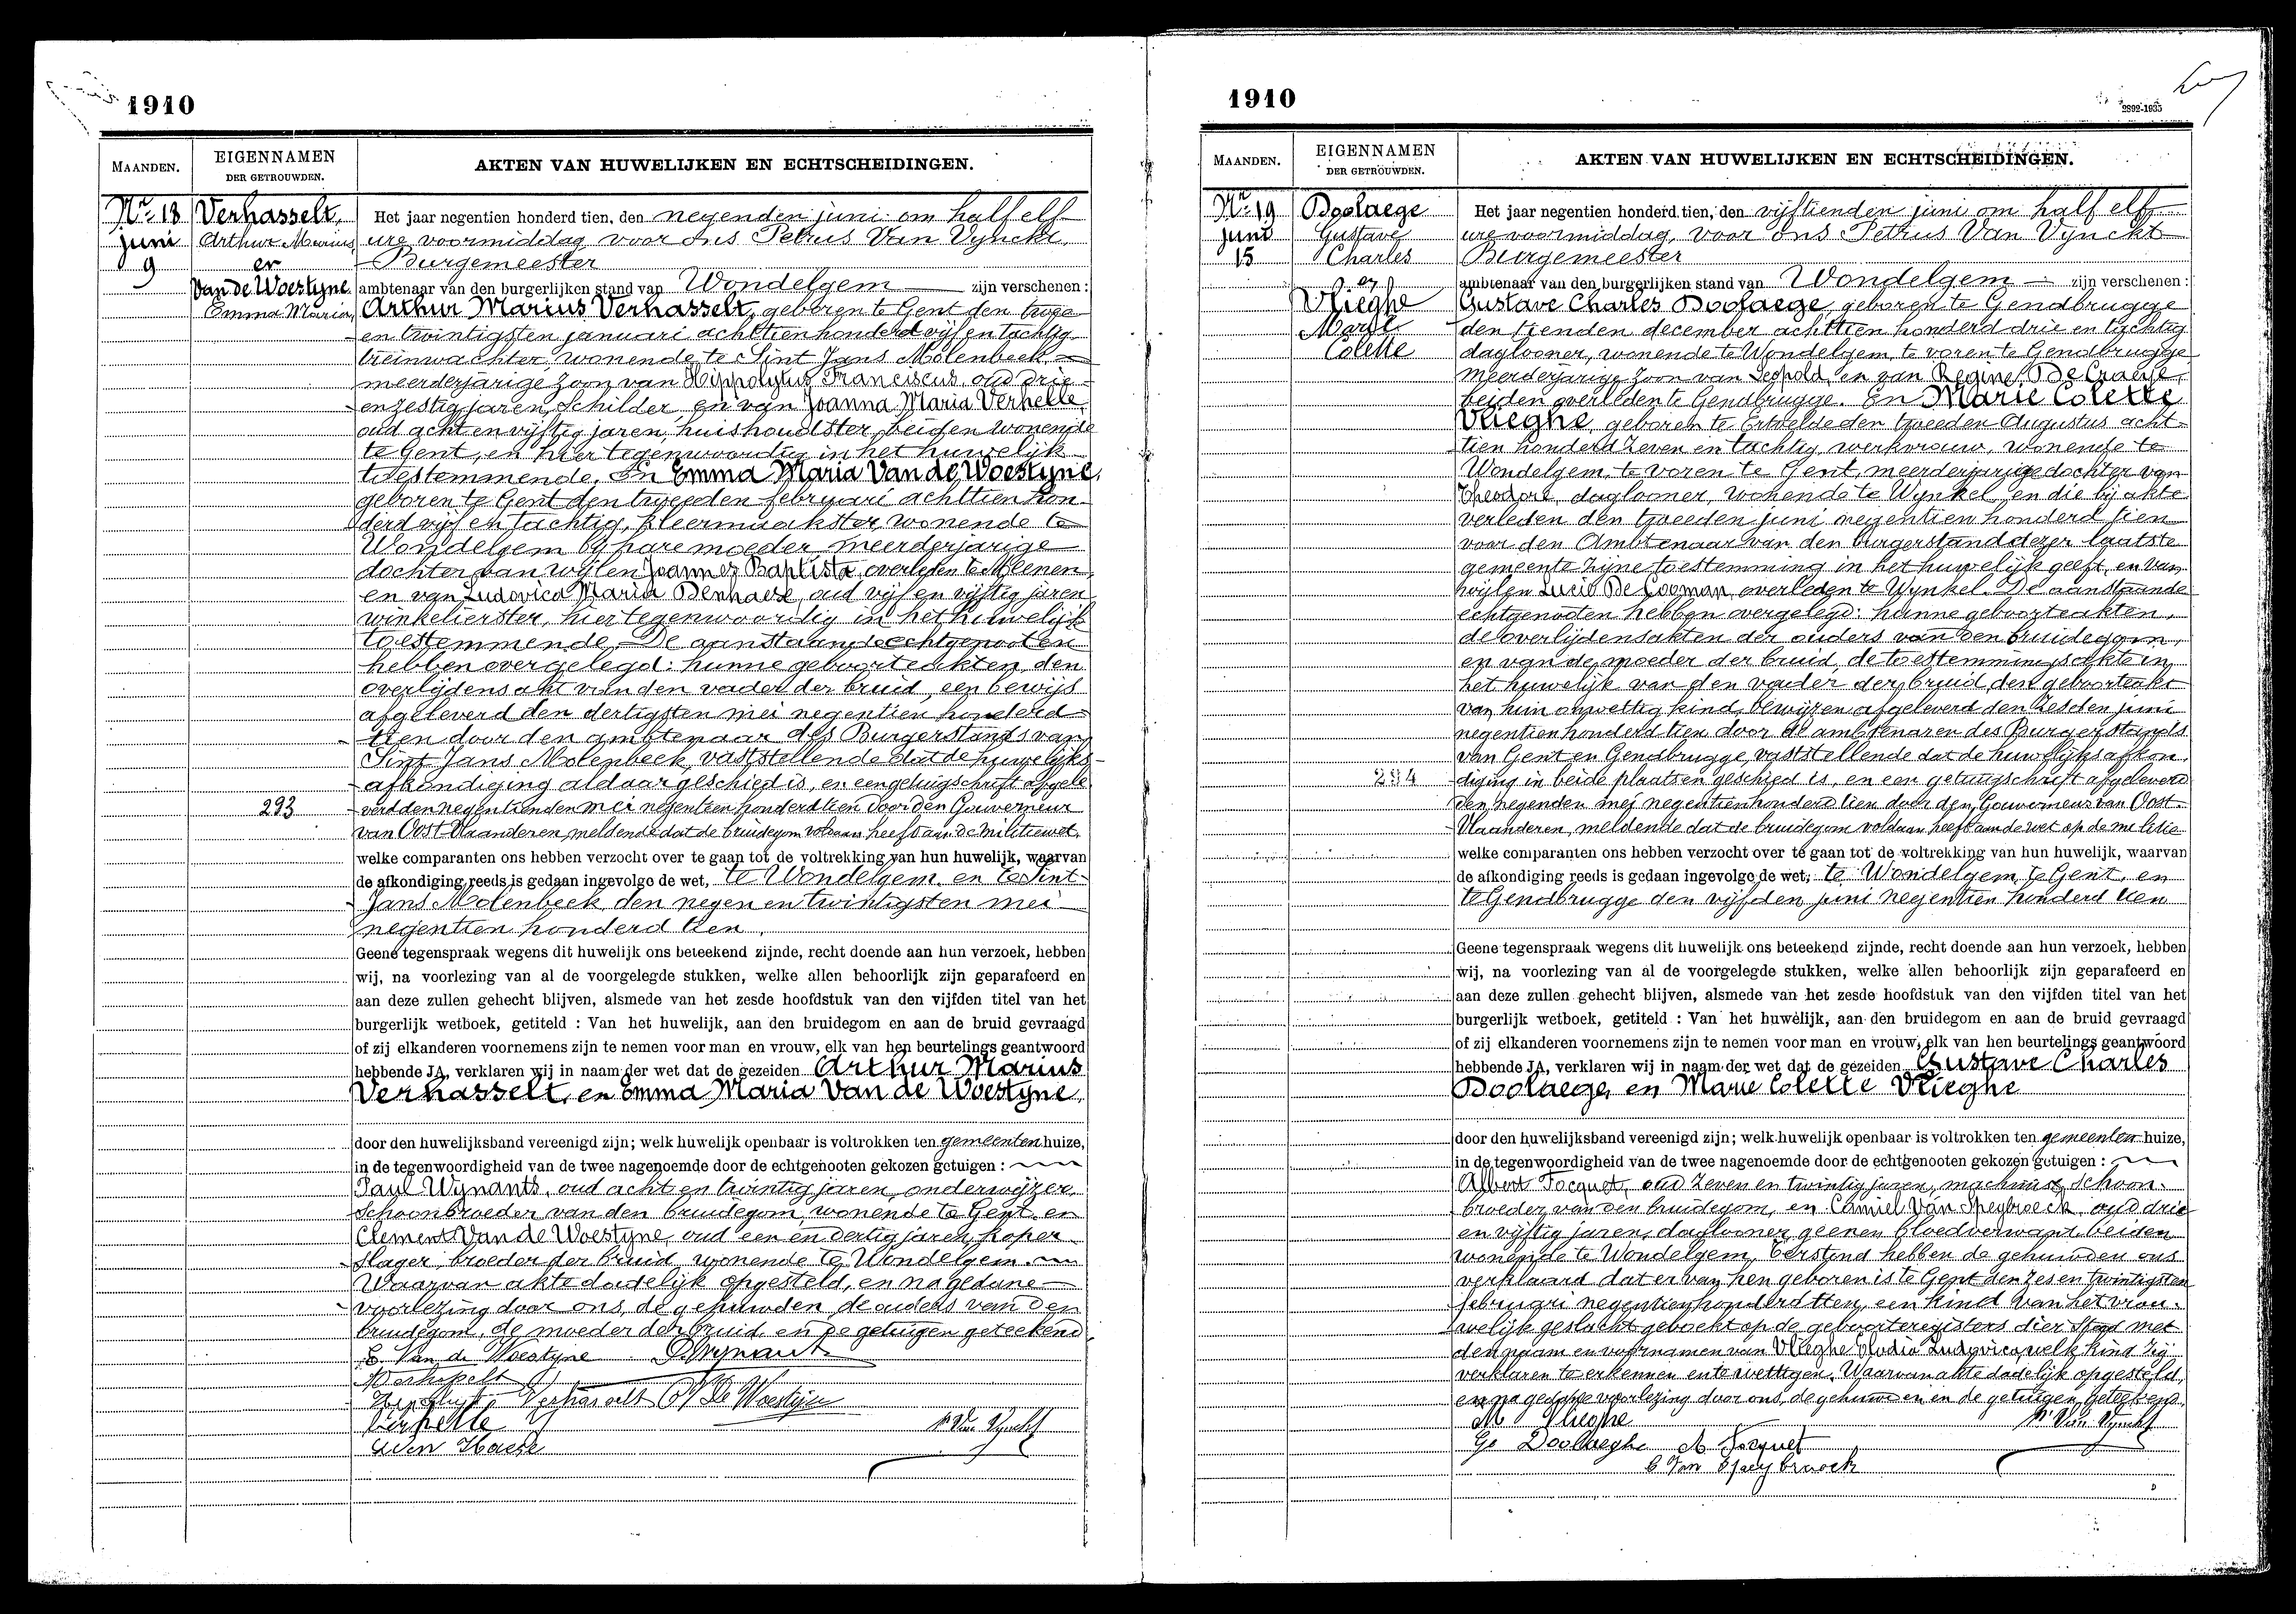 1910
MAANDEN.
EIGENNAMEN
DER GETROUWDEN.
AKTEN VAN HUWELIJKEN EN ECHTSCHEIDINGEN.
Nr 18
juni
9
Verhasselt,
Arthur Marius
en
Van de Woestyne
Emma Maria,
Het jaar negentien honderd tien, den negenden juni om half elf
ure voormiddag voor ons Petrus Van Vynckt,
Burgemeester
ambtenaar van den burgerlijken stand van Wondelgem zijn verschenen :
Arthur Marius Verhasselt, geboren te Gent den twee
en twintigsten januari achttien honderd vijf en tachtig
treinwachter, wonende te Sint Jans Molenbeek,
meerderjarige zoon van Hippolytus Franciscus, oud drie
en zestig jaren, schilder en van Joanna Maria Verhelle,
oud acht en vijftig jaren, huishoudster, beiden wonende
te Gent, en hier tegenwoordig in het huwelijk
toestemmende. En Emma Maria Van de Woestyne,
geboren te Gent den tweeden februari achttien hon-
derd vijf en tachtig, kleermaakster, wonende te
Wondelgem bij hare moeder, meerderjarige
dochter van wijlen Joannes Baptista, overleden te Meenen,
en van Ludovica Maria Denhaese, oud vijf en vijftig jaren
winkelierster, hier tegenwoordig in het huwelijk
toestemmende. De aanstaande echtgenooten
hebben overgelegd : hunne geboorteakten, den
overlijdensakt van den vader der bruid, een bewijs
afgeleverd den dertigsten mei negentien honderd
tien door den ambtenaar des Burgerstands van
Sint Jans Molenbeek, vaststellende dat de huwelijks-
afkondiging aldaar geschied is, en een getuigschrift afgele-
293
verd den negentienden mei negentien honderd tien door den Gouverneur
van Oost Vlaanderen, meldende dat de bruidegom voldaan heeft aan de militiewet.
welke comparanten ons hebben verzocht over te gaan tot de voltrekking van hun huwelijk, waarvan
de afkondiging reeds is gedaan ingevolge de wet, te Wondelgem en te Sint-
Jans Molenbeek, den negen en twintigsten mei
negentien honderd tien.
Geene tegenspraak wegens dit huwelijk ons beteekend zijnde, recht doende aan hun verzoek, hebben
wij, na voorlezing van al de voorgelegde stukken, welke allen behoorlijk zijn geparafeerd en
aan deze zullen gehecht blijven, alsmede van het zesde hoofdstuk van den vijfden titel van het
burgerlijk wetboek, getiteld : Van het huwelijk, aan den bruidegom en aan de bruid gevraagd
of zij elkanderen voornemens zijn te nemen voor man en vrouw, elk van hen beurtelings geantwoord
hebbende JA, verklaren wij in naam der wet dat de gezeiden Arthur Marius
Verhasselt, en Emma Maria Van de Woestyne,
door den huwelijksband vereenigd zijn; welk huwelijk openbaar is voltrokken ten gemeenten huize,
in de tegenwoordigheid van de twee nagenoemde door de echtgenooten gekozen getuigen :
Paul Wynants, oud acht en twintig jaren, onderwijzer,
schoonbroeder van den bruidegom, wonende te Gent, en
Clement Van de Woestyne, oud een en dertig jaren, koper-
slager, broeder der bruid, wonende te Wondelgem.
Waarvan akte dadelijk opgesteld, en na gedane
voorlezing door ons, de gehuwden, de ouders van den
bruidegom, de moeder der bruid, en de getuigen geteekend
E. Van de Woestyne P. Wynants
Verhasselt
Verhasselt Van De Woestijne
Verhelle
P. Van Vynckt
1910
2892-1935
MAANDEN.
EIGENNAMEN
DER GETROUWDEN.
AKTEN VAN HUWELIJKEN EN ECHTSCHEIDINGEN.
Nr 19
juni
15
Doolaege
Gustave
Charles
en
Vlieghe
Marie
Colette
Het jaar negentien honderd tien, den vijftienden juni om half elf
ure voormiddag, voor ons Petrus Van Vynckt
Burgemeester
ambtenaar van den burgerlijken stand van Wondelgem zijn verschenen :
Gustave Charles Doolaege, geboren te Gendbrugge
den tienden december achttien honderd drie en tachtig
daglooner, wonende te Wondelgem, te voren te Gendbrugge
meerderjarige zoon van Leopold, en van Regine De Craeije,
beiden overleden te Gendbrugge. En Marie Colette
Vlieghe, geboren te Ertvelde den tweeden Augustus acht-
tien honderd zeven en tachtig, werkvrouw, wonende te
Wondelgem, te voren te Gent, meerderjarige dochter van
Theodore, daglooner, wonende te Wynkel, en die bij akte
verleden den tweeden juni negentien honderd tien
voor den Ambtenaar van den burgerstand dezer laatste
gemeente zijne toestemming in het huwelijk geeft, en van
wijlen Lucie De Cooman, overleden te Wynkel. De aanstaande
echtgenooten hebben overgelegd : hunne geboorteakten,
de overlijdensakten der ouders van den bruidegom,
en van de moeder der bruid, de toestemmingsakte in
het huwelijk van den vader der bruid, den geboorteakt
van hun onwettig kind, bewijzen afgeleverd den zesden juni
negentien honderd tien door de ambtenaren des Burgerstands
van Gent en Gendbrugge, vaststellende dat de huwelijksafkon-
294
diging in beide plaatsen geschied is, en een getuigschrift afgeleverd
den negenden mei negentien honderd tien door den Gouverneur van Oost-
Vlaanderen, meldende dat de bruidegom voldaan heeft aan de wet op de militie
welke comparanten ons hebben verzocht over te gaan tot de voltrekking van hun huwelijk, waarvan
de afkondiging reeds is gedaan ingevolge de wet, te Wondelgem, te Gent, en
te Gendbrugge den vijfden juni negentien honderd tien
Geene tegenspraak wegens dit huwelijk ons beteekend zijnde, recht doende aan hun verzoek, hebben
wij, na voorlezing van al de voorgelegde stukken, welke allen behoorlijk zijn geparafeerd en
aan deze zullen gehecht blijven, alsmede van het zesde hoofdstuk van den vijfden titel van het
burgerlijk wetboek, getiteld : Van het huwelijk, aan den bruidegom en aan de bruid gevraagd
of zij elkanderen voornemens zijn te nemen voor man en vrouw, elk van hen beurtelings geantwoord
hebbende JA, verklaren wij in naam der wet dat de gezeiden Gustave Charles
Doolaege, en Marie Colette Vlieghe
door den huwelijksband vereenigd zijn; welk huwelijk openbaar is voltrokken ten gemeenten huize,
in de tegenwoordigheid van de twee nagenoemde door de echtgenooten gekozen getuigen :
Albert Focquet, oud zeven en twintig jaren, machinist, schoon-
broeder van den bruidegom, en Camiel Van Speybroeck, oud drie
en vijftig jaren, daglooner, geenen bloedverwant, beiden
wonende te Wondelgem. Terstond hebben de gehuwden ons
verklaard dat er van hen geboren is te Gent den zes en twintigsten
februari negentien honderd tien, een kind van het vrou-
welijk geslacht geboekt op de geboorteregisters dier Stad met
den naam en voornamen van Vlieghe Elodia Ludovica, welk kind zij
verklaren te erkennen en te wettigen. Waarvan akte dadelijk opgesteld,
en na gedane voorlezing door ons, de gehuwden en de getuigen geteekend.
M Vlieghe
P. Van Vynckt
Gs Doolaeghe A Focquet
C Van Speybroeck